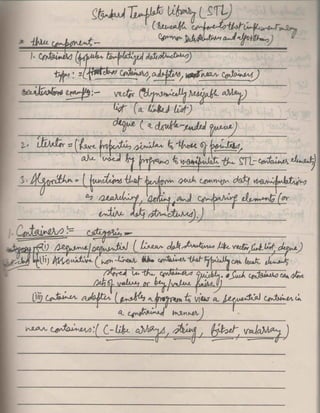 Standard Template Library (STL)
(Reusable components that implement many
common data structures and algorithms)
* three component:-
1. Containers (popular templatized data structures)
types := (first class containers, adapters, near containers)
examples:- vector (dynamically resizable array)
list (a linked list)
deque (a double-ended queue)
2. iterator = (have properties similar to those of pointers,
are used by programs to manipulate the STL-container elements)
3. Algorithm = (functions that perform such common data manipulations
as searching, sorting and comparing elements (or
entire data structures).)
1. Containers:= categories -
(i) sequence/sequential (Linear data structures like vector, link list, deque)
(ii) Associative (non-linear containers that typically can locate elements
stored in the containers quickly. Such containers can store
sets of values or key/value pairs.)
(iii) Container adapter (enables a program to view a sequential container in
a constrained manner)
near containers:( C-like arrays, string, bitset, valarray)